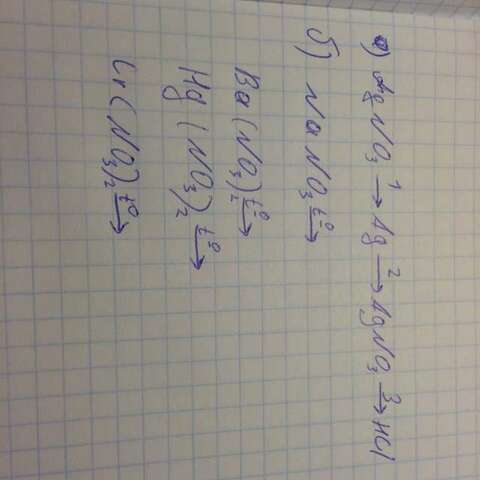 а) AgNO₃ →¹ Ag →² AgNO₃ →³ HCl
б) NaNO₃ t⁰→
Ba(NO₃)₂ t⁰→
Hg(NO₃)₂ t⁰→
Cr(NO₃)₂ t⁰→